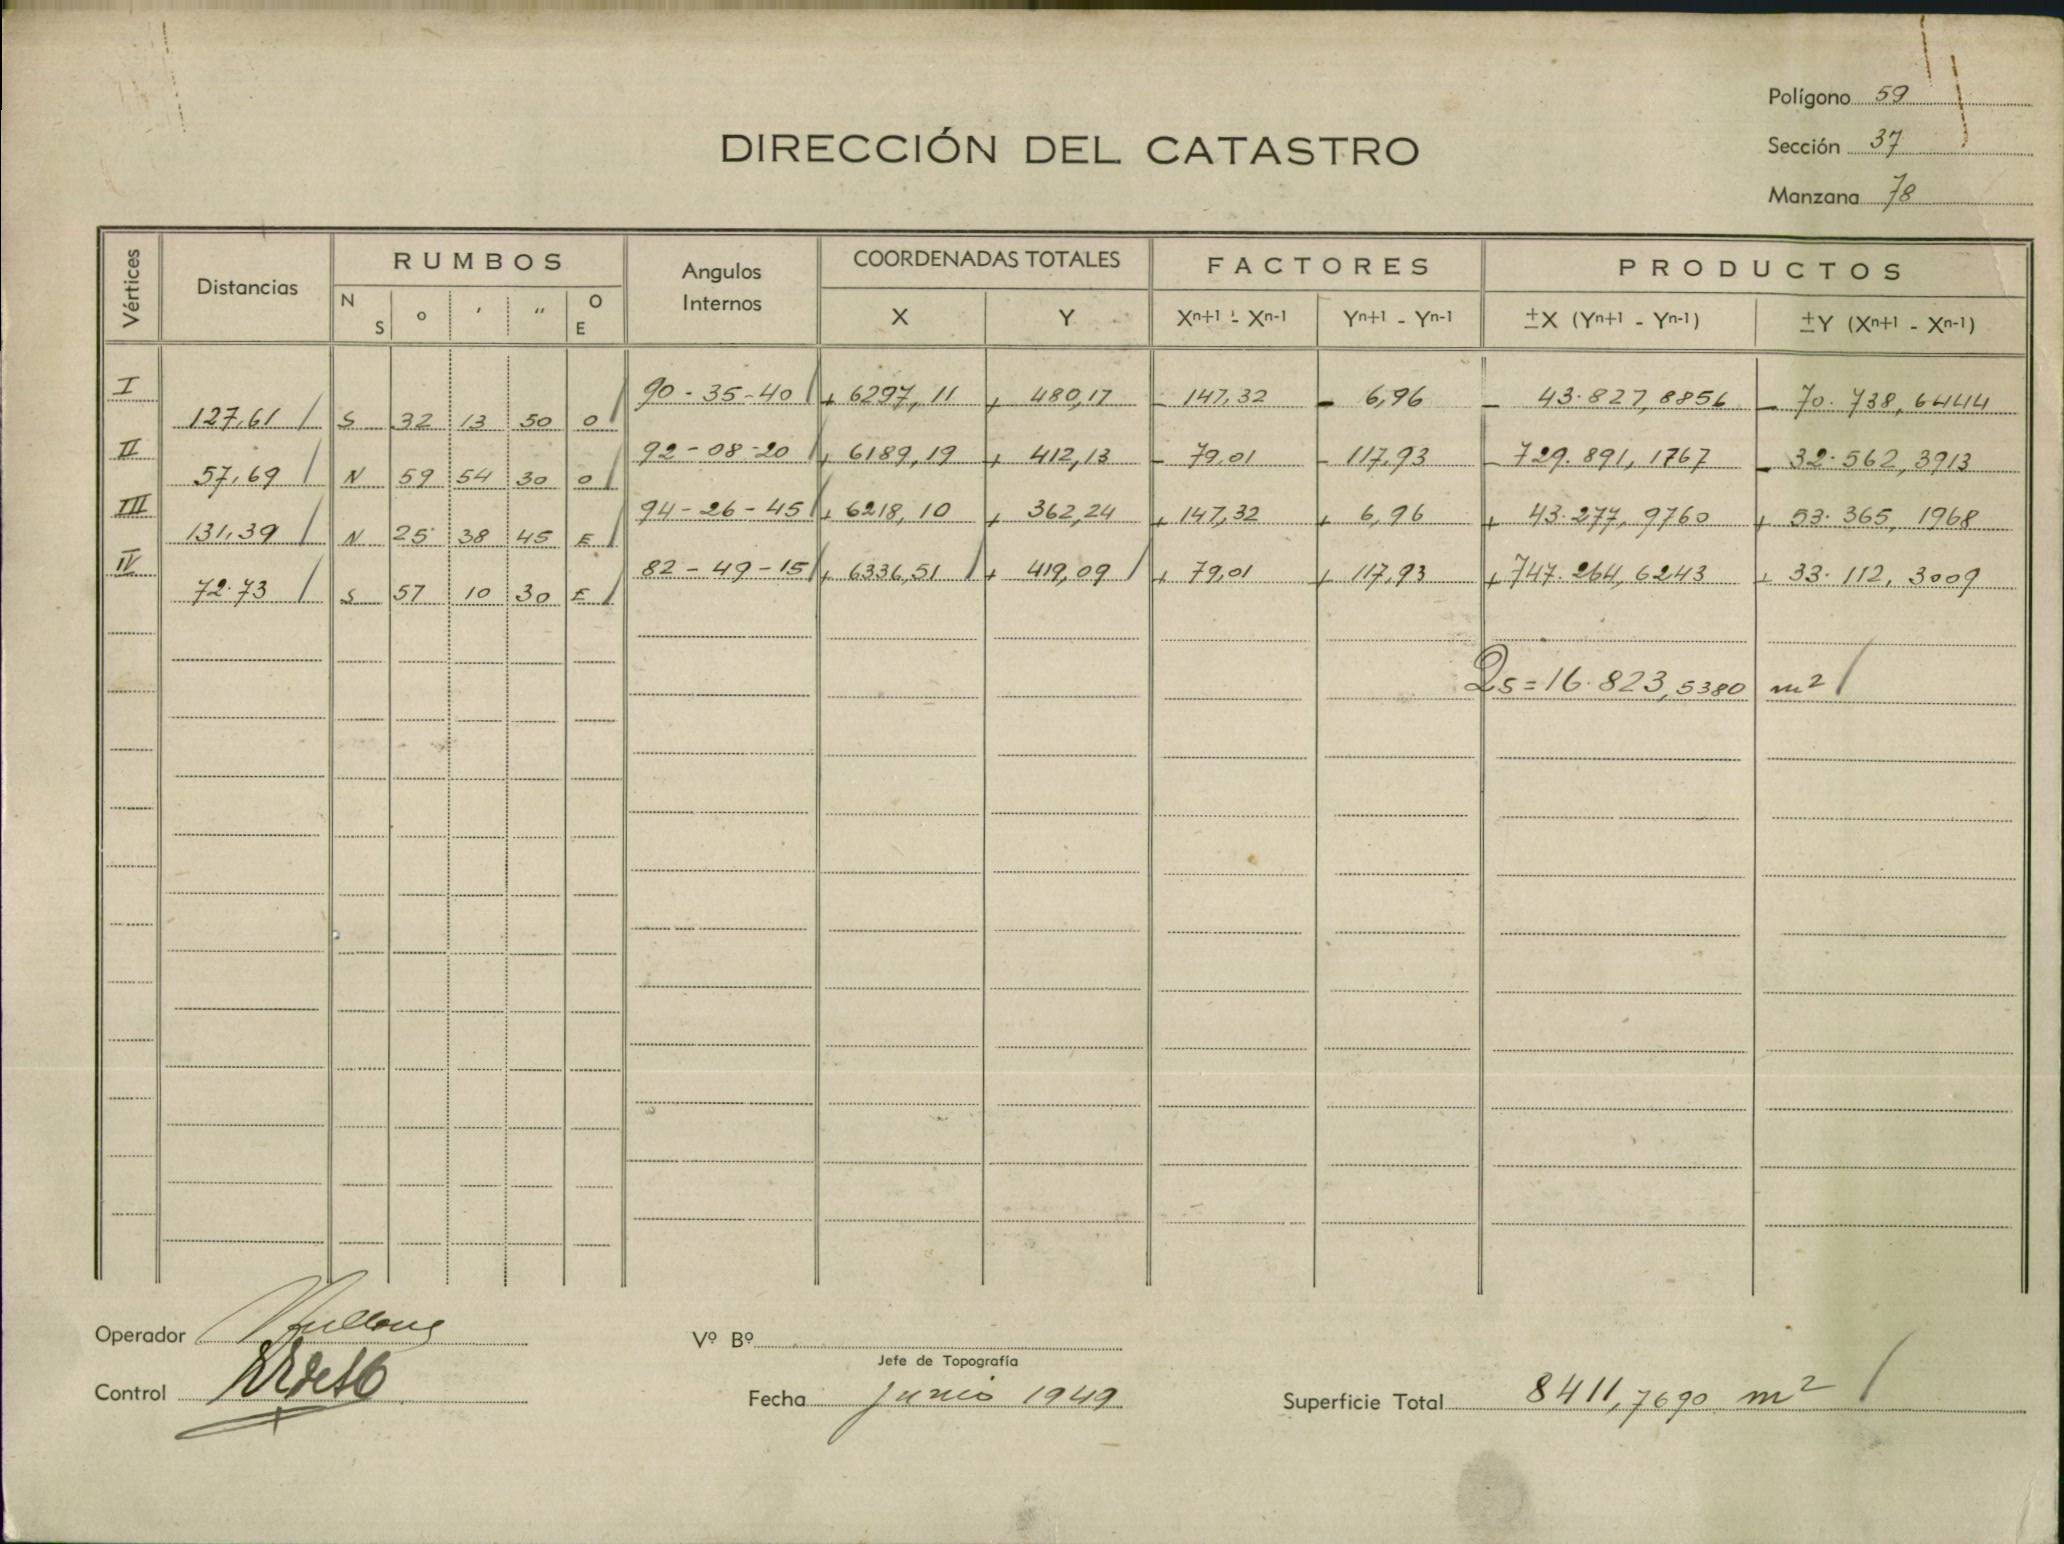 Polígono 59
DIRECCIÓN DEL CATASTRO
Sección 37
Manzana 78
Vértices Distancias RUMBOS Angulos Internos COORDENADAS TOTALES FACTORES PRODUCTOS
N S o ' " O E X Y Xn+1 - Xn-1 Yn+1 - Yn-1 ±X (Yn+1 - Yn-1) ±Y (Xn+1 - Xn-1)
I 90-35-40 + 6297,11 + 480,17 - 147,32 - 6,96 - 43.827,8856 - 70.738,6444
127,61 S 32 13 50 O
II 92-08-20 + 6189,19 + 412,13 - 79,01 - 117,93 - 729.891,1767 - 32.562,3913
57,69 N 59 54 30 O
III 94-26-45 + 6218,10 + 362,24 + 147,32 + 6,96 + 43.277,9760 + 53.365,1968
131,39 N 25 38 45 E
IV 82-49-15 + 6336,51 + 419,09 + 79,01 + 117,93 + 747.264,6243 + 33.112,3009
72.73 S 57 10 30 E
2s=16.823,5380 m²
Operador
Vº Bº
Jefe de Topografía
Control
Fecha junio 1949
Superficie Total 8411,7690 m²